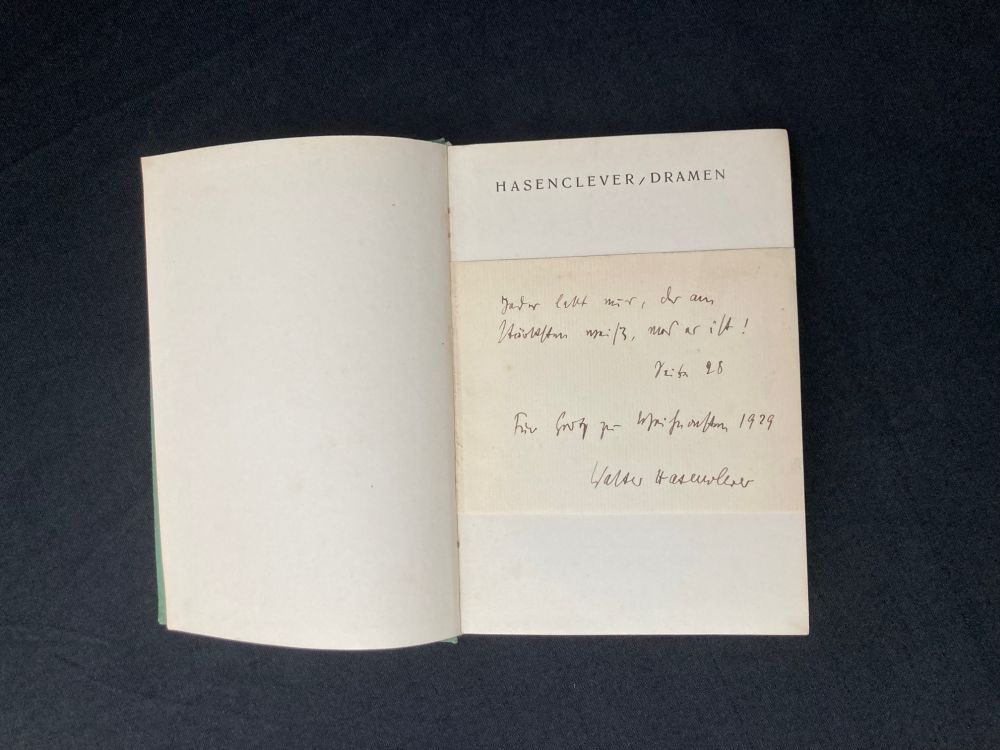 HASENCLEVER/DRAMEN
Jeder lebt nur, der am
stärksten weiß, was er ist!
Seite 28
Für zu Weihnachten 1929
Walter Hasenclever